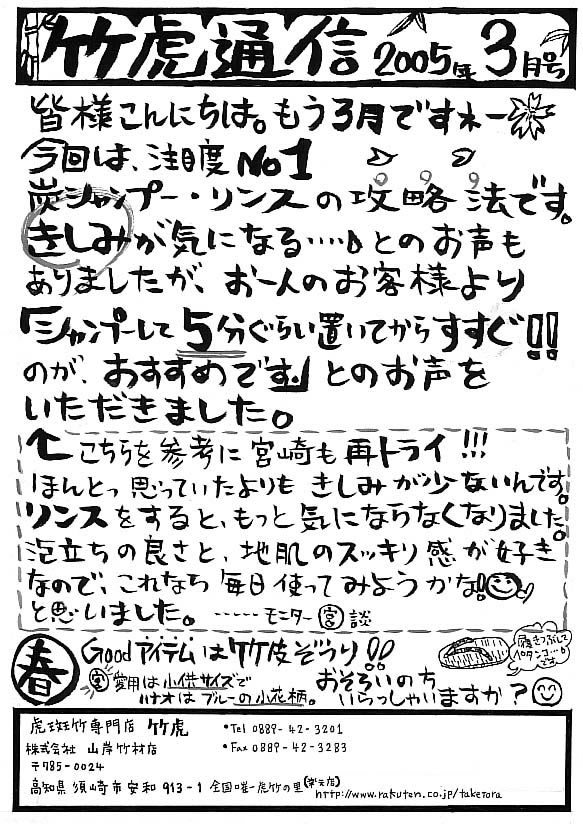 竹虎通信 2005年 3月号
皆様こんにちは。もう3月ですネー
今回は、注目度No1
炭シャンプー・リンスの攻略法です。
きしみが気になる‥‥♪とのお声も
ありましたが、お一人のお客様より
「シャンプーして5分ぐらい置いてからすすぐ!!
のが、おすすめです。」とのお声を
いただきました。
こちらを参考に宮崎も再トライ!!!
ほんとっ思っていたよりもきしみが少ないんです。
リンスをすると、もっと気にならなくなりました。
泡立ちの良さと、地肌のスッキリ感が好き
なので、これなら毎日使ってみようかな!
と思いました。‥‥‥モニター宮談
春 Goodアイテムは竹皮ぞうり!!
履きつぶして
ペタンコ…
です。
宮愛用は小供サイズで
ハナオはブルーの小花柄。
おそろいのち
いらっしゃいますか?
虎斑竹専門店 竹虎 •Tel 0889-42-3201
株式会社 山岸竹材店 •Fax 0889-42-3283
〒785-0024
高知県須崎市安和913-1 全国唯一虎竹の里 (楽天店) http://www.rakuten.co.jp/taketora